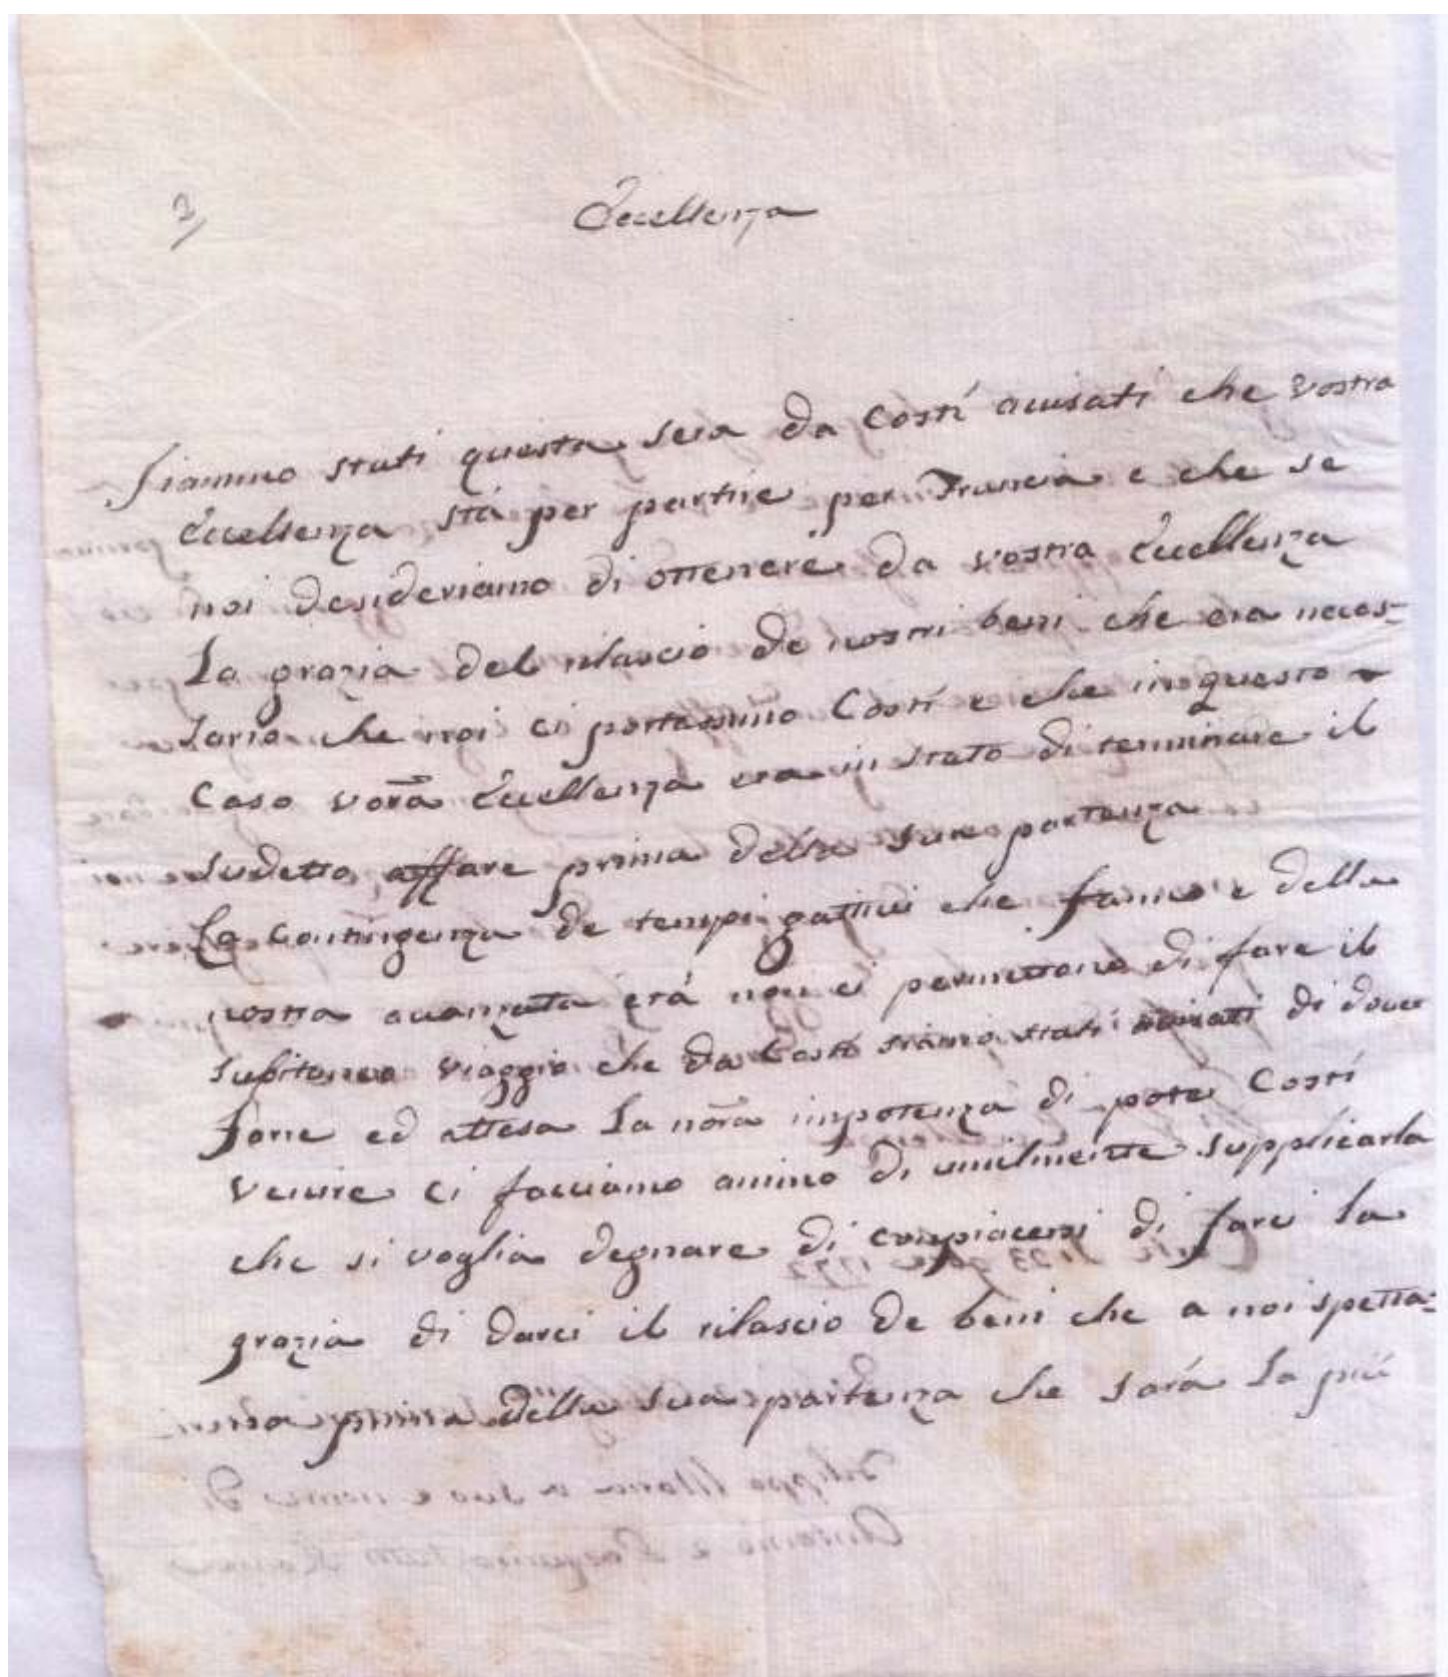 2
Eccellenza
Siammo stati questa sera da Costí auisati che vostra
Eccellenza stà per partire per Francia e che se
noi desideriamo di ottenere da vostra Eccellenza
La grazia del rilascio de nostri beni che era neces=
sario che noi ci portassimo Costí e che in questo
Caso vorã Eccellenza era in stato di terminare il
sudetto affare prima della sua partenza
La Contingenza de tempi gattiui che fanno e della
nostra auanzata età non ci permettono di fare il
subitaneo viaggio che da Costí siamo stati auisati di douer
fare ed attesa La norã impotenza di poter Costí
venire ci facciamo animo di umilmente supplicarla
che si voglia degnare di compiacersi di farci la
grazia di darci il rilascio de beni che a noi spetta=
prima della sua partenza che sarà La più